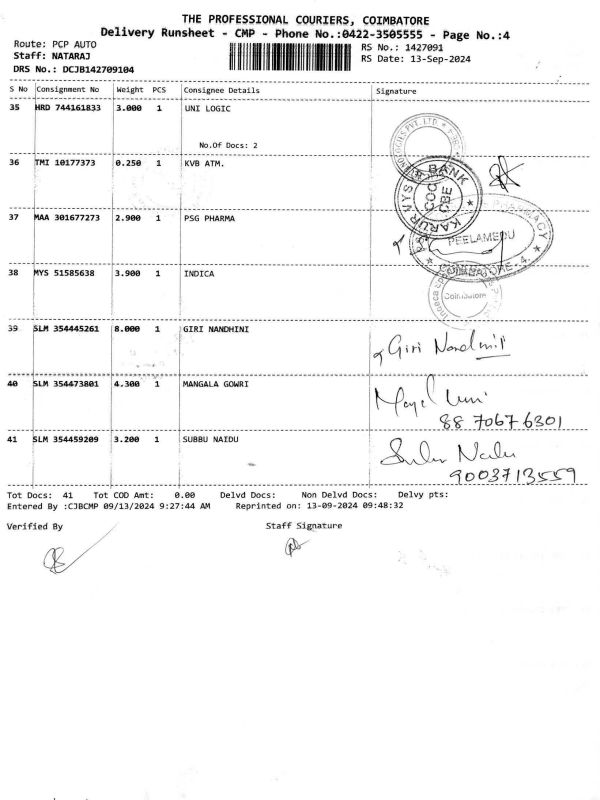 THE PROFESSIONAL COURIERS, COIMBATORE
Delivery Runsheet - CMP - Phone No.:0422-3505555 - Page No.:4
Route: PCP AUTO
Staff: NATARAJ
DRS No.: DCJB142709104
RS No.: 1427091
RS Date: 13-Sep-2024
S No Consignment No Weight PCS Consignee Details Signature
35 HRD 744161833 3.000 1 UNI LOGIC
No.Of Docs: 2
36 TMI 10177373 0.250 1 KVB ATM.
KARUR VYSYA BANK
CBE
37 MAA 301677273 2.900 1 PSG PHARMA
PHARMACY
PEELAMEDU
COIMBATORE-4.
38 MYS 51585638 3.900 1 INDICA
Coimbatore
39 SLM 354445261 8.000 1 GIRI NANDHINI
Giri Nandhini
40 SLM 354473801 4.300 1 MANGALA GOWRI
88 7067 6301
41 SLM 354459209 3.200 1 SUBBU NAIDU
Subbu Naidu
9003713559
Tot Docs: 41 Tot COD Amt: 0.00 Delvd Docs: Non Delvd Docs: Delvy pts:
Entered By :CJBCMP 09/13/2024 9:27:44 AM Reprinted on: 13-09-2024 09:48:32
Verified By Staff Signature